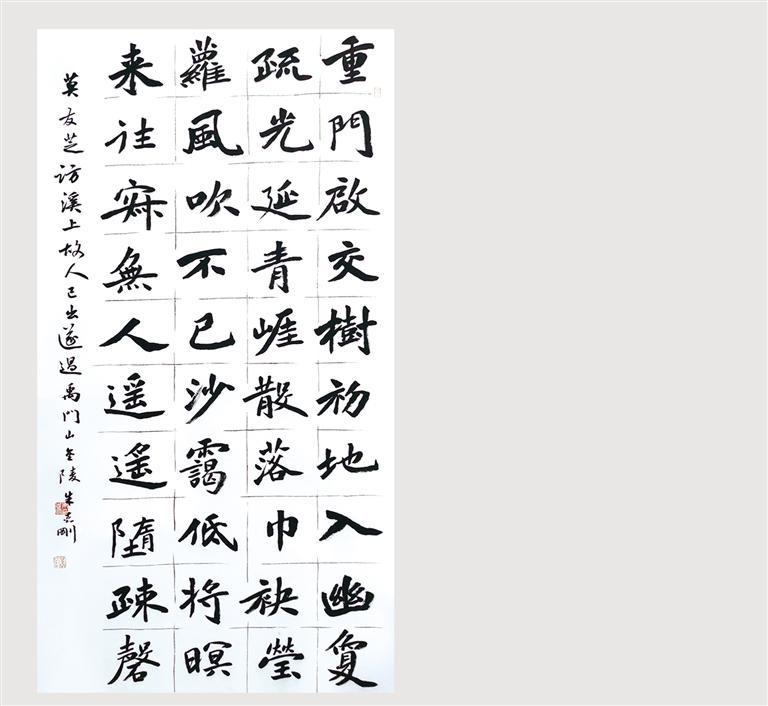 重門啟交樹初地入幽敻
疏光延青崕散落巾袂瑩
蘿風吹不已沙靄低将暝
来往寂無人遥遥墮疎磬
莫友芝访溪上故人已出遂過禹門山金陵朱志剛